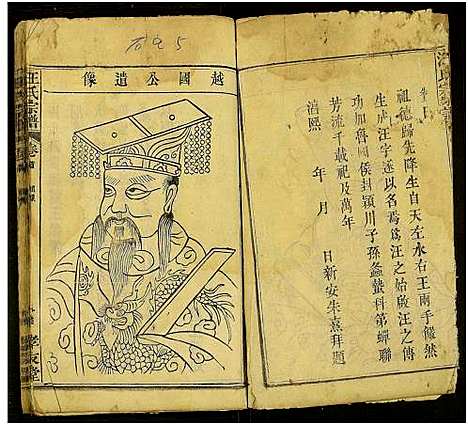 越國公遺像
汪氏宗譜
卷
祖德歸先降生自天左水右王兩手儼然
生庐汪字遂以名焉爲汪之始啟汪之傳
功加魯國侯封潁川子孫螽蟄科第蟬聯
芳流千載祀及萬年
淳熙 年 月 日新安朱熹拜題